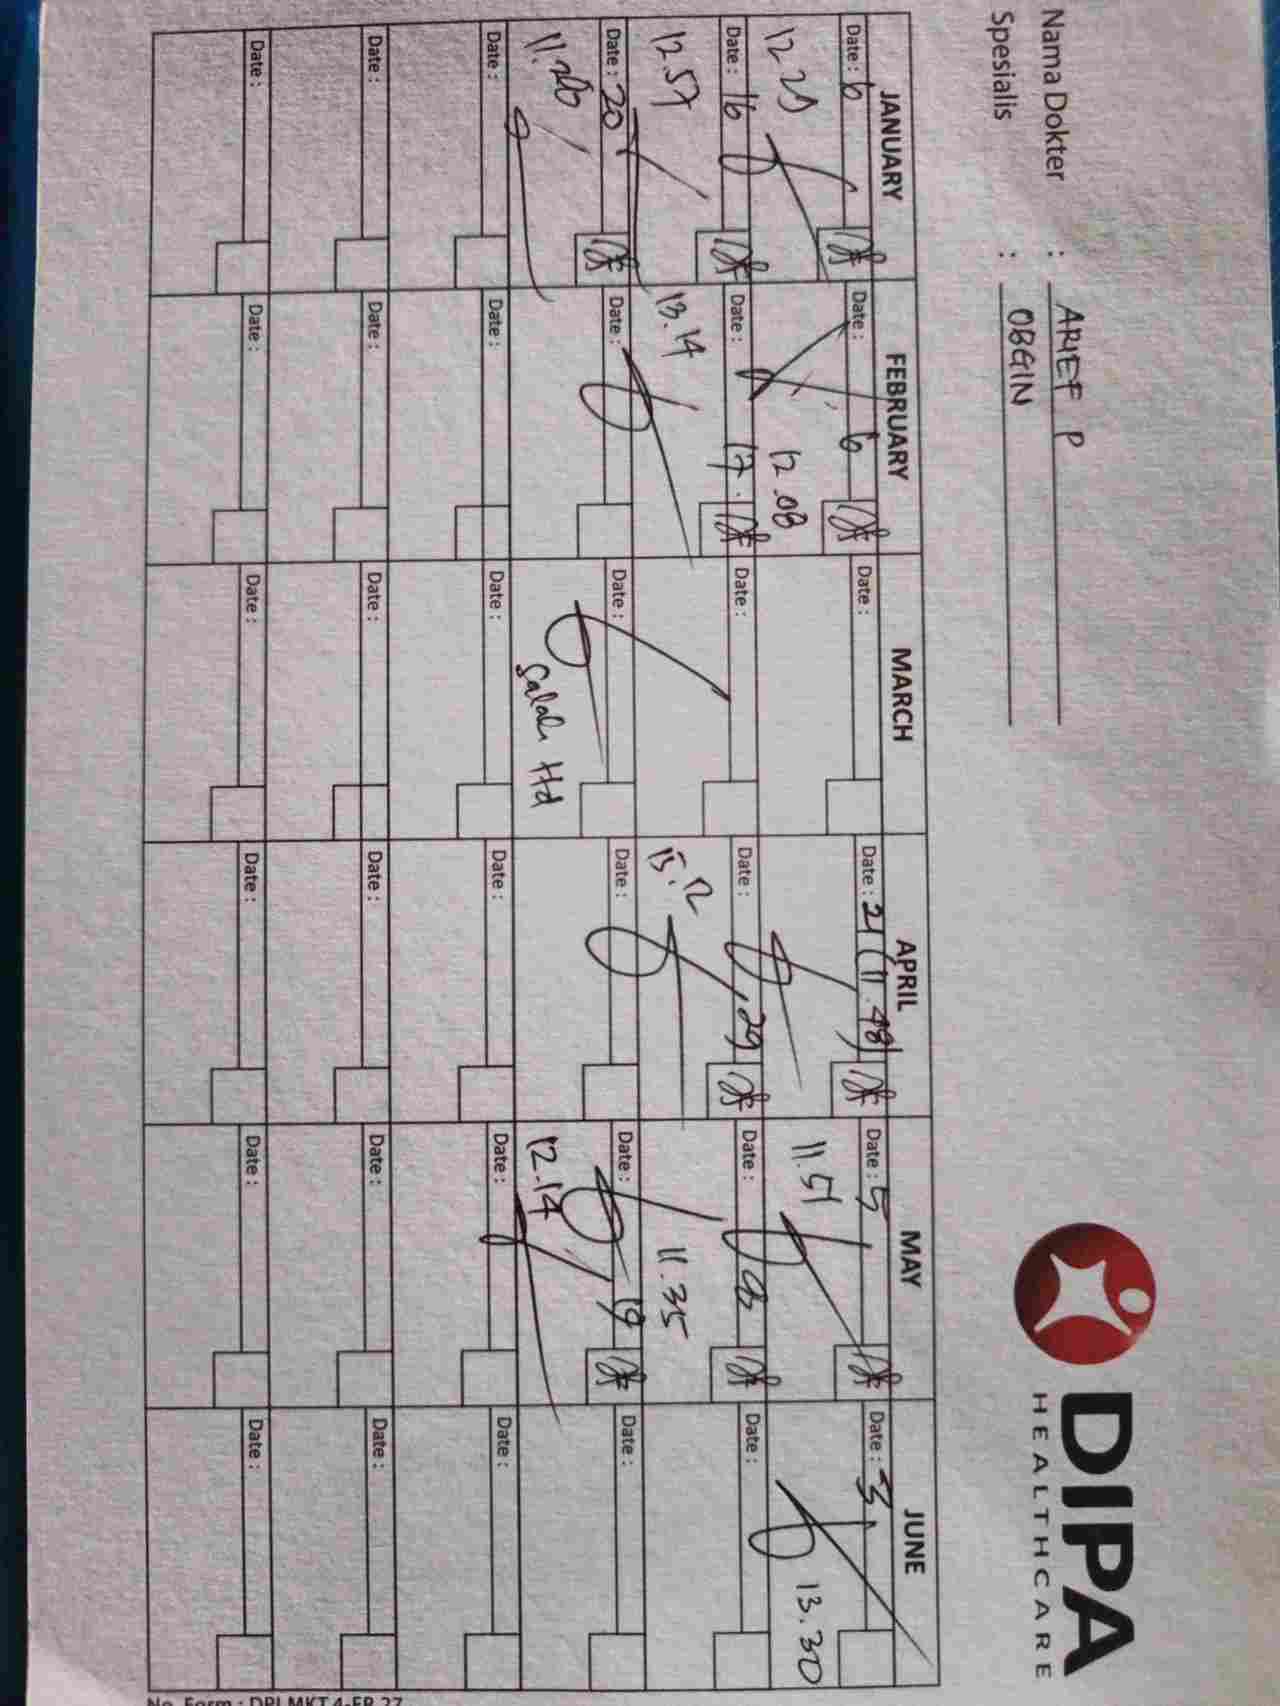 DIPA
HEALTHCARE
Nama Dokter : ARIEF P
Spesialis : OBGIN
JANUARY FEBRUARY MARCH APRIL MAY JUNE
Date : 6 Date : 6 Date : Date : 21 (11.48) Date : 5 Date : 3
12.29 12.08 11.51 13.30
Date : 16 Date : 17. Date : Date : 29 Date : 8 Date :
12.57 13.14 15.12 11.35
Date : 20 Date : Date : Date : Date : 19 Date :
11.26 Salah Ttd 12.14
Date : Date : Date : Date : Date : Date :
Date : Date : Date : Date : Date : Date :
Date : Date : Date : Date : Date : Date :